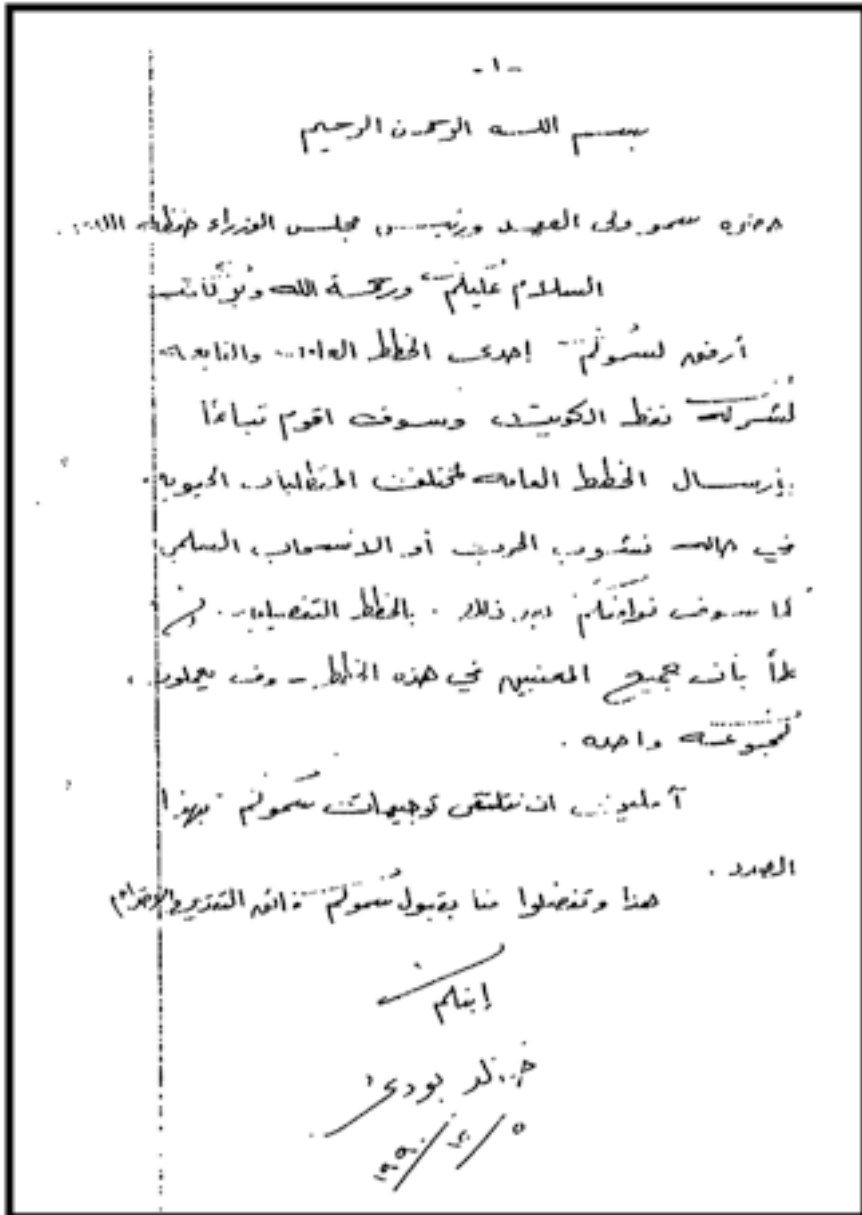 -١-
بسم الله الرحمن الرحيم
حضرة سمو ولي العهد ورئيس مجلس الوزراء حفظه الله.
السلام عليكم ورحمة الله وبركاته
أرفق لسموكم إحدى الخطط العامة والتابعة
لشركة نفط الكويت وسوف اقوم تباعاً
بإرسال الخطط العامه لمختلف المتطلبات الحيويه
في حاله نشوب الحرب أو الانسحاب السلمي
كما سوف نوافيكم بعد ذلك . بالخطط التفصيليه .
علماً بأن جميع المعنيين في هذه الخطط سوف يعملون
كمجموعه واحده .
آملين ان نتلقى توجيهات سموكم بهذا
الصدد .
هذا وتفضلوا منا بقبول سموكم فائق التقدير والاحترام
إبنكم
خالد بودي
٥/ /١٩٩٠